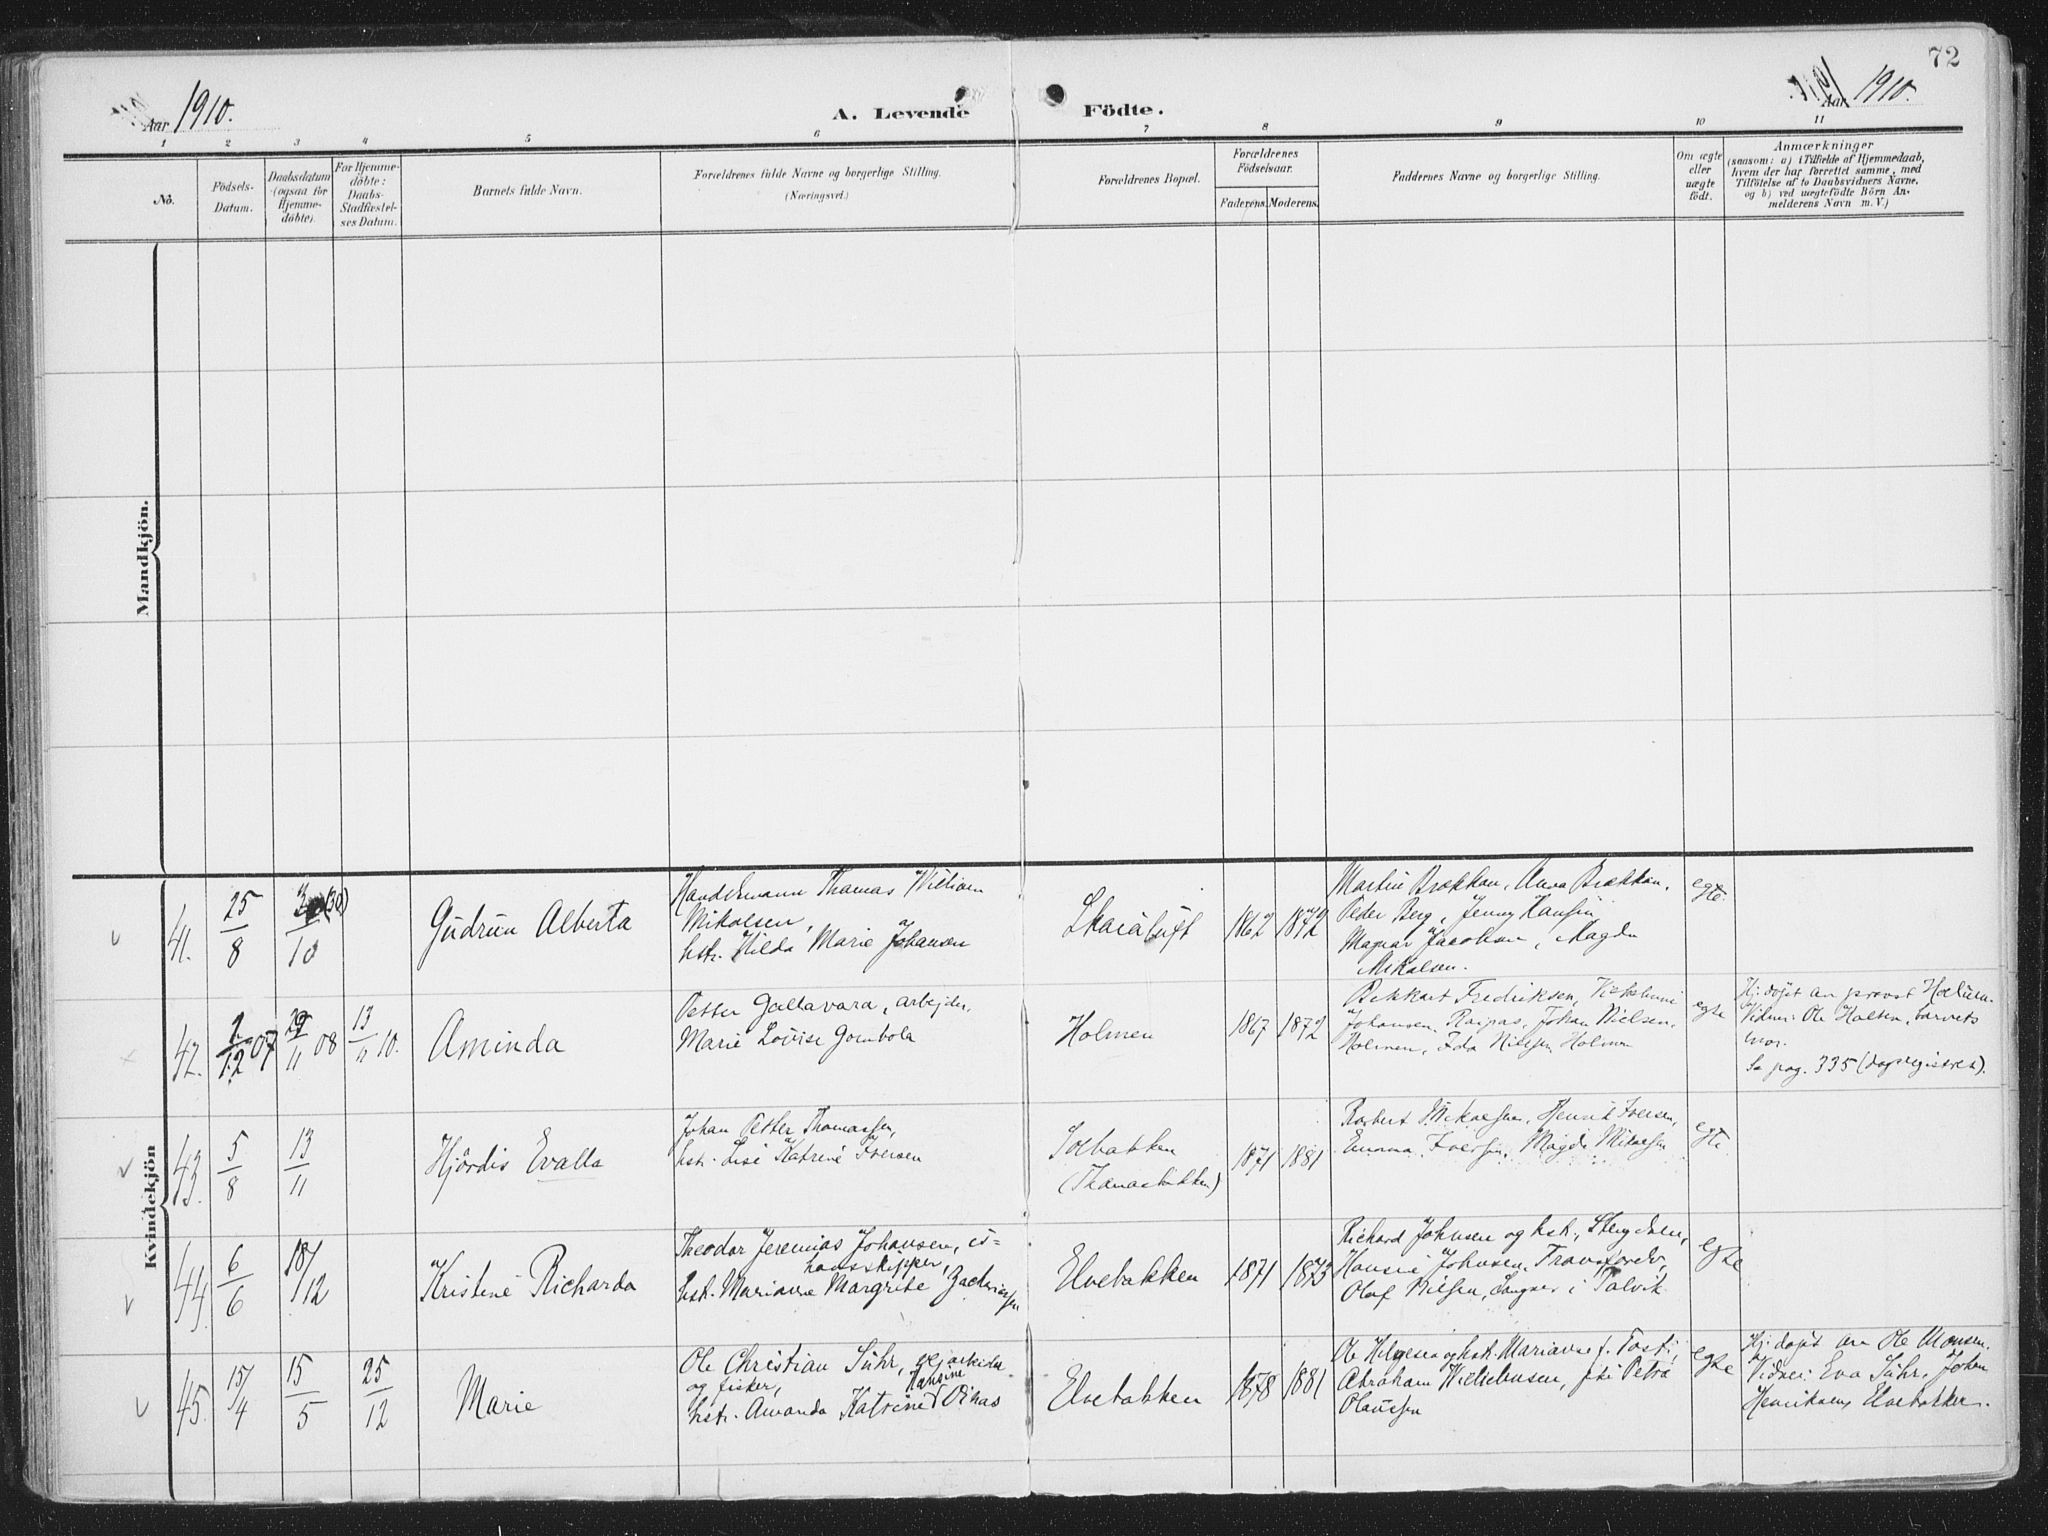 72
Aar 1910.
A. Levende Födte.
Aar 1910.
1 2 3 4 5 6 7 8 9 10 11
No.
Födsels-
Datum.
Daabsdatum
(ogsaa for
Hjemme-
döbte).
For Hjemme-
döbte:
Daabs-
Stadfæstel-
ses Datum.
Barnets fulde Navn.
Forældrenes fulde Navne og borgerlige Stilling.
(Næringsvei.)
Forældrenes Bopæl.
Forældrenes
Födselsaar.
Faderens. Moderens.
Faddernes Navne og borgerlige Stilling.
Om ægte
eller
uægte
födt.
Anmærkninger
(saasom: a) i Tilfælde af Hjemmedaab,
hvem der har forrettet samme, med
Tilföielse af to Daabsvidners Navne,
og b) ved uægtefödte Börn An-
melderens Navn m. V.)
Mandkjön.
Kvindekjön
41.
25/8
(30)
10
Gudrun Alberta
Handelsmann Thomas William
Mikalsen,
hstr. Hilda Marie Johansen
1862 1872
Martin Brækkan, Anna Brækkan,
Peder Berg, Jenny
Magnar Jacobsen, Magda
Mikalsen.
egte.
42.
12 07
11 08
13/11 10.
Aminda
Petter Gallavara, arbejder,
Marie Lovise Gombola
Holmen
1867 1872
Fredriksen,
Johansen, Raipas, Johan Nielsen,
Holmen, Ida Nilssen Holmen
egte
Hj. døpt av provst
Vidner: Ole Halten, barnets
mor.
Se pag. 335 (dagsregistret).
43.
5/8
13/11
Hjördis Evalla
Johan Petter Thomassen,
hstr. Lise Katrine Iversen
(Thomasbakken)
1871 1881
Robert Mikalsen, Henrik Iversen,
Emma Iversen, Magda Mikalsen
egte
44.
6/6
18/12
Kristine Richarda
Theodor Jeremias Johansen, is-
havsskipper,
hstr. Marianne Margrete Zachriassen
Elvebakken
1871 1873
Richard Johnsen og hst.,
Hansine Johnsen,
Olaf Nilsen, i Talvik
egte
45.
15/4
15/5
25/12
Marie
Ole Christian Suhr,
og fisker,
Hansine
hstr. Amanda Katrine Oinas
Elvebakken
1878 1881
Ole og hst. Marianne f. Tosti,
Abraham Wilhelmsen, Petra
Olaussen
egte
Hj. døpt av Ole Monsen.
Vidner: Eva Suhr, Johan
Henriksens Elvebakken.